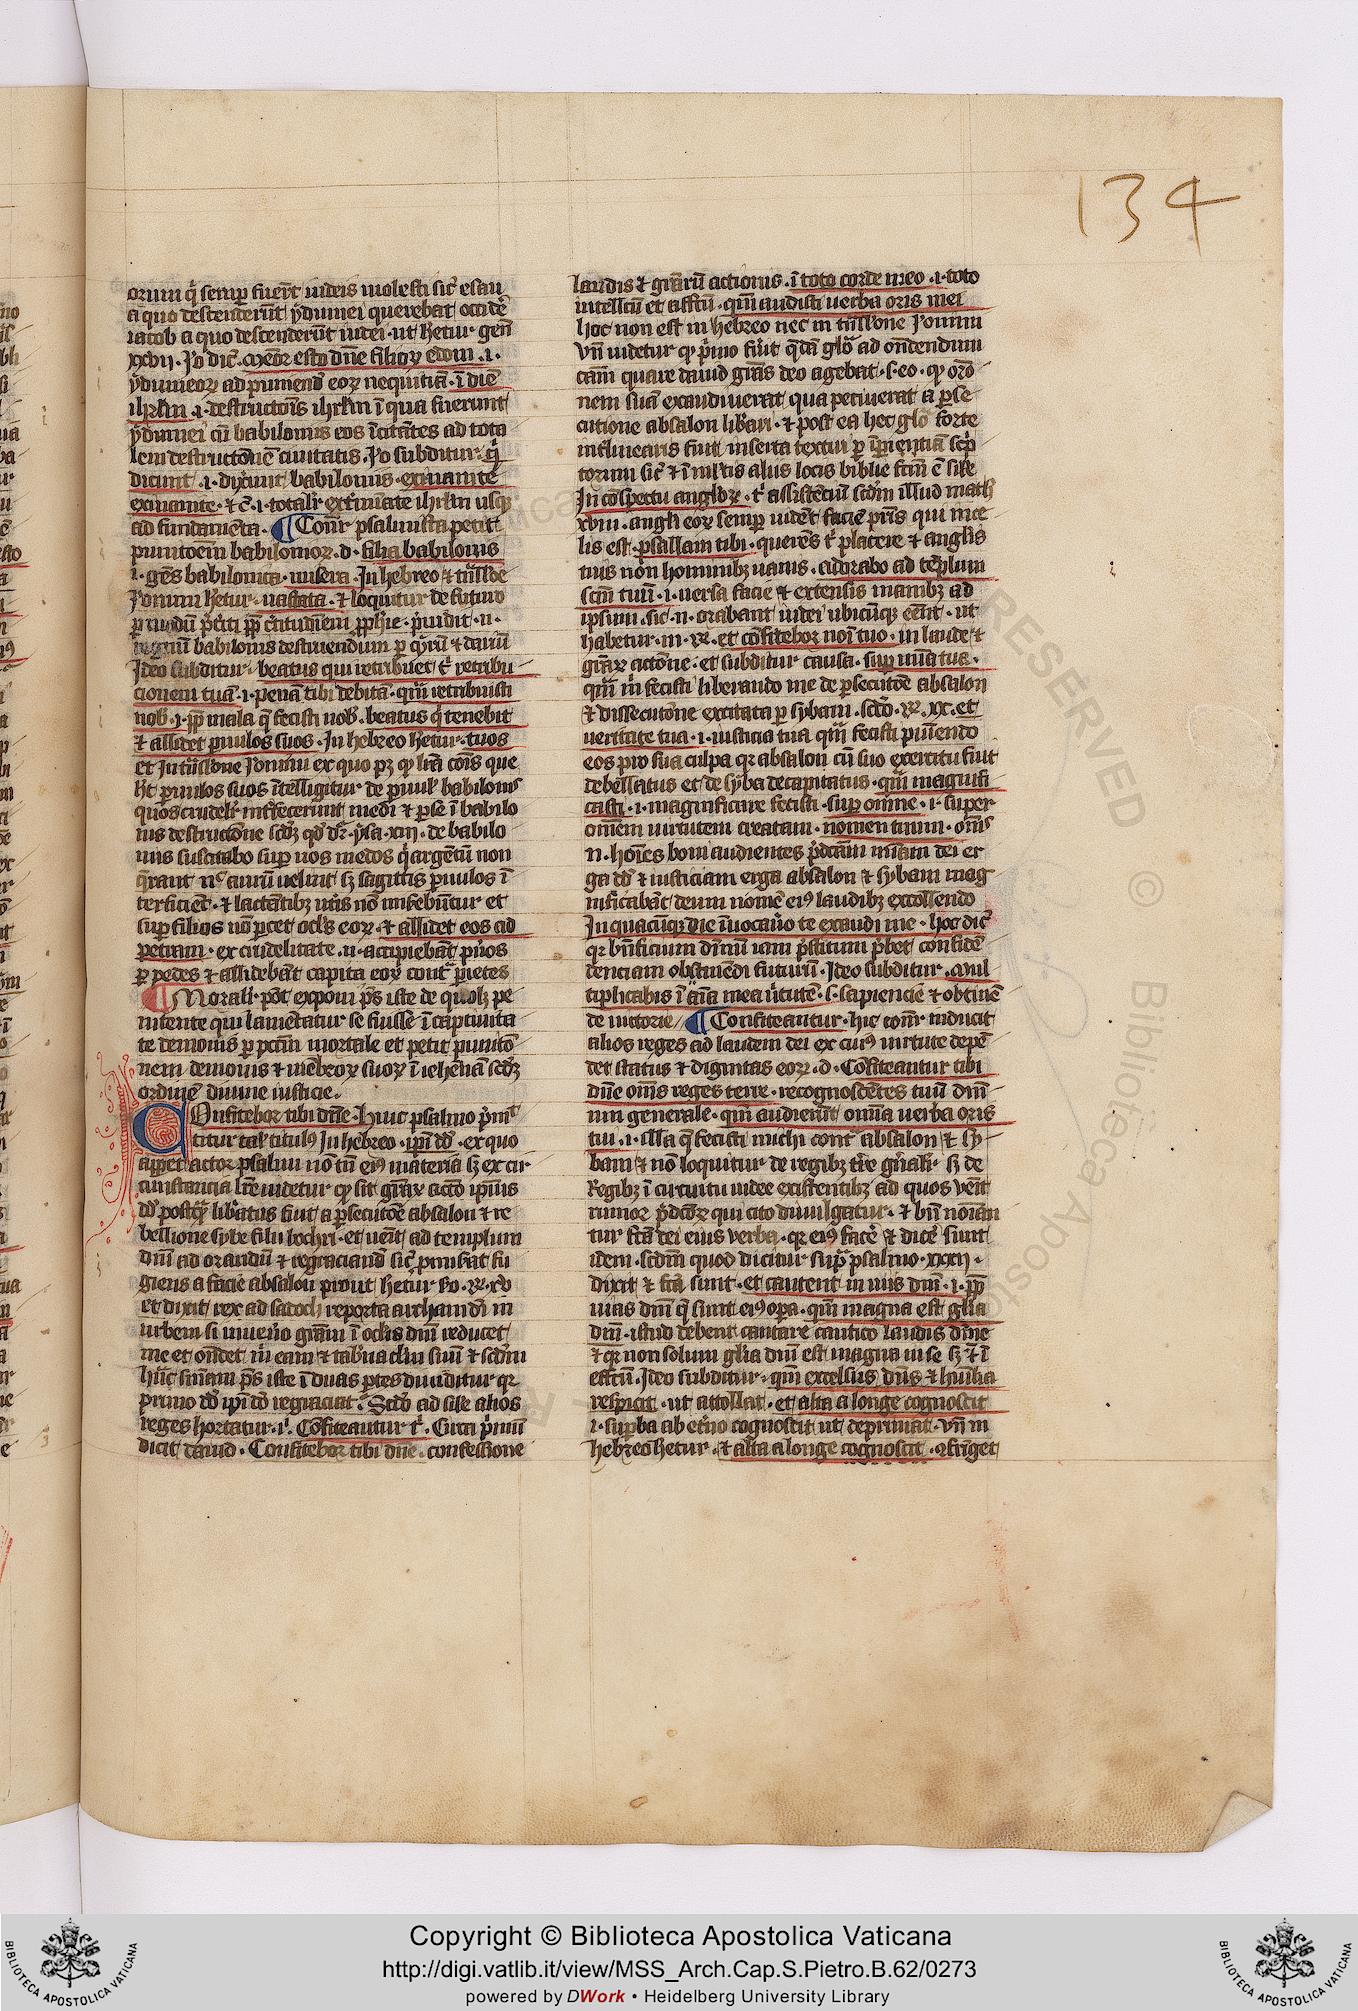 134
orum q̄ semp fuer̄t iudeis molesti sic̄ esau
a quo descenderūt ydumei querebat occidē
iacob a quo descenderūt iudei ut hetur gen̄
xxvii. Io dic̄. Memor esto dn̄e filioꝝ edom .i.
ydumeoꝝ ad pumend̄ eoꝝ nequitiā. ī die
ihrlm̄ .i. destructōis ihrlm̄ ī qua fuerunt
ydumei cū babilonīis eos īcitātes ad tota
lem destructōnē ciuitatis. Io subditur. q̄
dicunt .i. dixerunt babilonīis. exinanite
exinanite. ⁊ c̄. i. totalr̄ ext̄minate ihrlm̄ usqꝫ
ad fundamēta. ¶ Con̄r psalmista petit
punitoēm babilonioꝝ. d. filia babilonis
.i. gēs babilonica. misera. In hebreo ⁊ tn̄sl̄oe
Ieronimi hetur. uastata. ⁊ loquitur de futuro
Ideo subditur. beatus qui retribuet t̄ retribu
cionem tuā .i. penā tibi debitā. quā retribuisti
nob̄ .i. pp̄ mala q̄ fecisti nob̄. beatus q̄ tenebit
⁊ allidet pauulos suos. In hebreo hetur. tuos
et In tn̄sl̄one Ieronimi ex quo pꝫ qꝫ lr̄a cōis que
ht̄ paruulos suos ītelligitur de paruul̄ babilonis
quos crudelr̄ int̄fecerunt medi ⁊ perse ī babilo
nis destructōne scdꝫ qd̄ dr̄. ysa. xiii. de babilo
niis suscitabo sup uos medos q̄ argētū non
q̄rant n̄c aurū uelint sꝫ sagittis paruulos ī
terficiēt. ⁊ lactātibꝫ ut̄is nō misebūtur et
sup filios nō pcet ocl̄s eoꝝ. ⁊ allidet eos ad
petram. ex crudelitate .n. accipiebāt pu̅os
per pedes ⁊ allidebāt capita eoꝝ cont̄ parietes
¶ Moralr̄. pōt exponi ps̄ iste de quolꝫ pe
nitente qui lamētatur se fuisse ī captiuita
te demonis per pctm̄ mortale et petit punitō
nem demonis ⁊ mēbroꝝ suoꝝ ī iehenā scdꝫ
ordinē diuine iusticie.
Confitebor tibi dn̄e. Huic psalmo p̄mit
titur tal̄ titulꝰ In hebreo. ip̄i dd̄. ex quo
apparet actor psalmi nō tn̄ eiꝰ materia sꝫ ex cir
cunstancia lr̄e uidetur qꝫ sit gr̄aꝝ actō ip̄ius
dd̄ postqꝫ libatus fuit a psecutōe absalon ⁊ re
bellione sybe filii bochri. et uēit ad templum
dn̄i ad orandū ⁊ regraciand̄ sic̄ pmisat fu
giens a facie absalon prout hetur ꝵo. R. xv
et dixit rex ad sadoch reporta archam dī in
urbem si inuenō grām ī oclis dn̄i reducet
me et ondet m̄ eam ⁊ tab̄naclm̄ suū ⁊ scd̄m
hūc sensum ps̄ iste ī duas ptes diuiditur qꝛ
primo dd̄ ip̄i dō regraciat̄. Scdō ad sil̄e alios
reges hortatur. i. Confiteantur t̄. Circa p̄mū
dicit dauid. Confitebor tibi dn̄e. confessione
laudis ⁊ grārū actionis. ī toto corde meo .i. toto
intellctū et affctū. qm̄ audisti uerba oris mei
hoc non est in hebreo nec in tn̄sl̄one Ieronimi
Vn̄ uidetur qꝫ p̄mo fuīt q̄dā glō ad ondendum
cām quare dauid grās deo agebat .s. eo. qꝫ orō
nem suā exaudiuerat, qua petiuerat a perse
cutione absalon lib̄ari. ⁊ post ea hec glō forte
intlinearis fuit inserta textui per īperientiā scp̄
torum sic̄ ⁊ ī ml̄tis aliis locis biblie fcm̄ ē sil̄e
In cōspectu anglōꝝ. t̄ assistenciū scd̄m illud math̄
xviii. angli eoꝝ semper uidēt faciē pr̄is qui in ce
lis est. psallam tibi. querēs t̄ placere ⁊ anglis
tuis nōn hominibꝫ uanis. adorabo ad tēplum
scm̄ tuū. i. uersa facie ⁊ extensis manibꝫ ad
ipsum. sic .n. orabant iudei ubicūqꝫ eēnt. ut
habetur. iii. R. et cōfitebor noī tuo. in laude ⁊
grāꝝ actōne. et subditur causa. sup mīa tua.
quā m̄ fecisti liberando me de psecutōe absalon
⁊ dissecutōne excitata per sybam. scdō. R. xx. et
ueritate tua .i. iusticia tua quā fecisti puniendo
eos pro sua culpa qꝛ absalon cū suo exercitu fuit
debellatus et de syba decapitatus. qm̄ magnifi
casti .i. magnificare fecisti. sup omne .i. super
omnem uirtutem creatam. nomen tuum. om̄s
.n. hoīes boni audientes p̄dcām mīam dei er
ga dd̄ ⁊ iusticiam erga absalon ⁊ sybam mag
nificabāt deum nomē eiꝰ laudibꝫ excollendo
In quacūqꝫ die īuocauo te exaudi me. hoc dic̄
qꝛ bn̄ficium diuinū iam p̄stitum p̄bet confidē
denciam obtinēdi futurū. Ideo subditur. Mul
tiplicabis ī aīa mea uirtutē .s. sapiencie ⁊ obtinē
de uictorie // ¶ Confiteantur. hic con̄r inducit
alios reges ad laudem dei ex cuiꝰ uirtute depē
det status ⁊ dignitas eoꝝ .d. Confiteantur tibi
dn̄e om̄s reges terre. recognoscētes tuū dm̄
ium generale. qm̄ audierūt om̄ia uerba oris
tui .i. illa q̄ fecisti michi cont̄ absalon ⁊ sy
bam ⁊ nō loquitur de regibꝫ tr̄e gn̄alr̄. sꝫ de
Regibꝫ ī circuitu iudee existentibꝫ ad quos uēit
rumor p̄dcōꝝ qui cito diuulgatur. ⁊ bn̄ noīan
tur fcā dei eius uerba. qꝛ eiꝰ facē ⁊ dicē sunt
idem. scd̄m quod dicitur sup̄ psalmo. xxxii.
dixit ⁊ fcā sunt. et cantent in uiis dn̄i .i. pp̄
uias dn̄i q̄ sunt eiꝰ opa. qm̄ magna est glīa
dn̄i. istud debent cantare cantico laudis diuīe
⁊ qꝛ non solum glīa dn̄i est magna in se sꝫ ⁊ ī
effctū. Ideo subditur. qm̄ excelsus dn̄s ⁊ humilia
respicit. ut attollat. et alta a longe cognoscit
.i. supba ab et̄no cognoscit ut deprimat. Vn̄ in
hebreo hetur. ⁊ alta a longe cognoscit. ꝯfriget
RESERVED © Biblioteca Aposto
BIBLIOTECA APOSTOLICA VATICANA
Copyright © Biblioteca Apostolica Vaticana
http://digi.vatlib.it/view/MSS_Arch.Cap.S.Pietro.B.62/0273
powered by DWork • Heidelberg University Library
BIBLIOTECA APOSTOLICA VATICANA